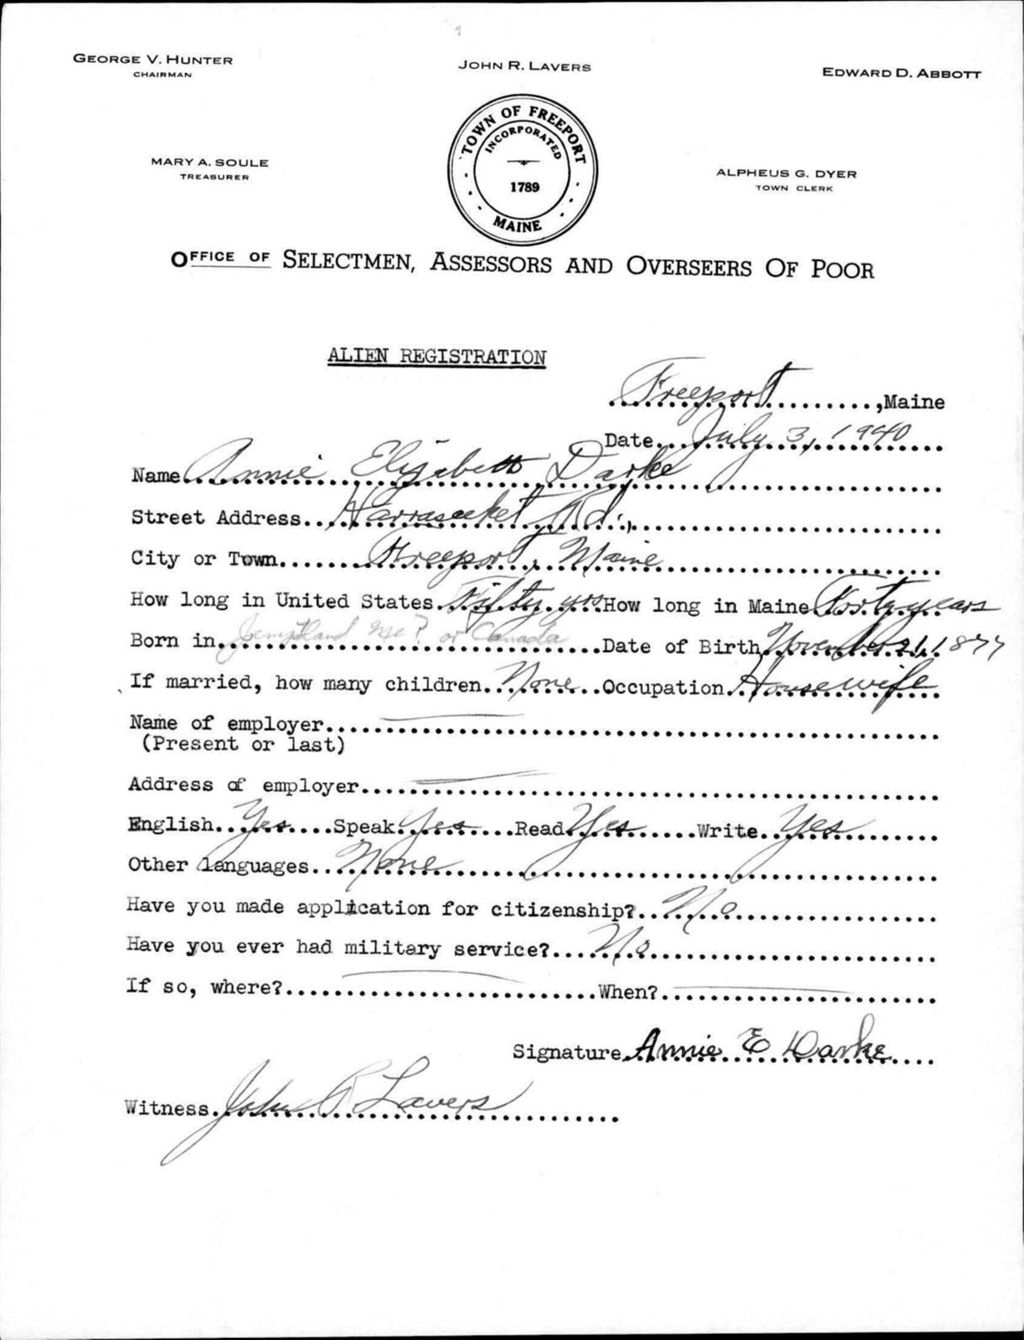 GEORGE V. HUNTER
CHAIRMAN
JOHN R. LAVERS
EDWARD D. ABBOTT
TOWN OF FREEPORT
INCORPORATED
1789
MAINE
MARY A. SOULE
TREASURER
ALPHEUS G. DYER
TOWN CLERK
OFFICE OF SELECTMEN, ASSESSORS AND OVERSEERS OF POOR
ALIEN REGISTRATION
Freeport..........,Maine
Date...July 3, 1940....
Name Annie Elizabeth Darke
Street Address...Harraseeket Rd.,
City or Town.......Freeport, Maine
How long in United States.Fifty yrs How long in Maine Forty years
Born in. Me? or Canada.....Date of Birth November 21, 1877
If married, how many children..None..Occupation.Housewife
Name of employer
(Present or last)
Address of employer
English..Yes....Speak.Yes....Read.Yes.....Write..Yes
Other languages..None
Have you made application for citizenship?..No
Have you ever had military service?....No
If so, where?..........................When?
Signature.Annie E Darke....
Witness.John R Lavers